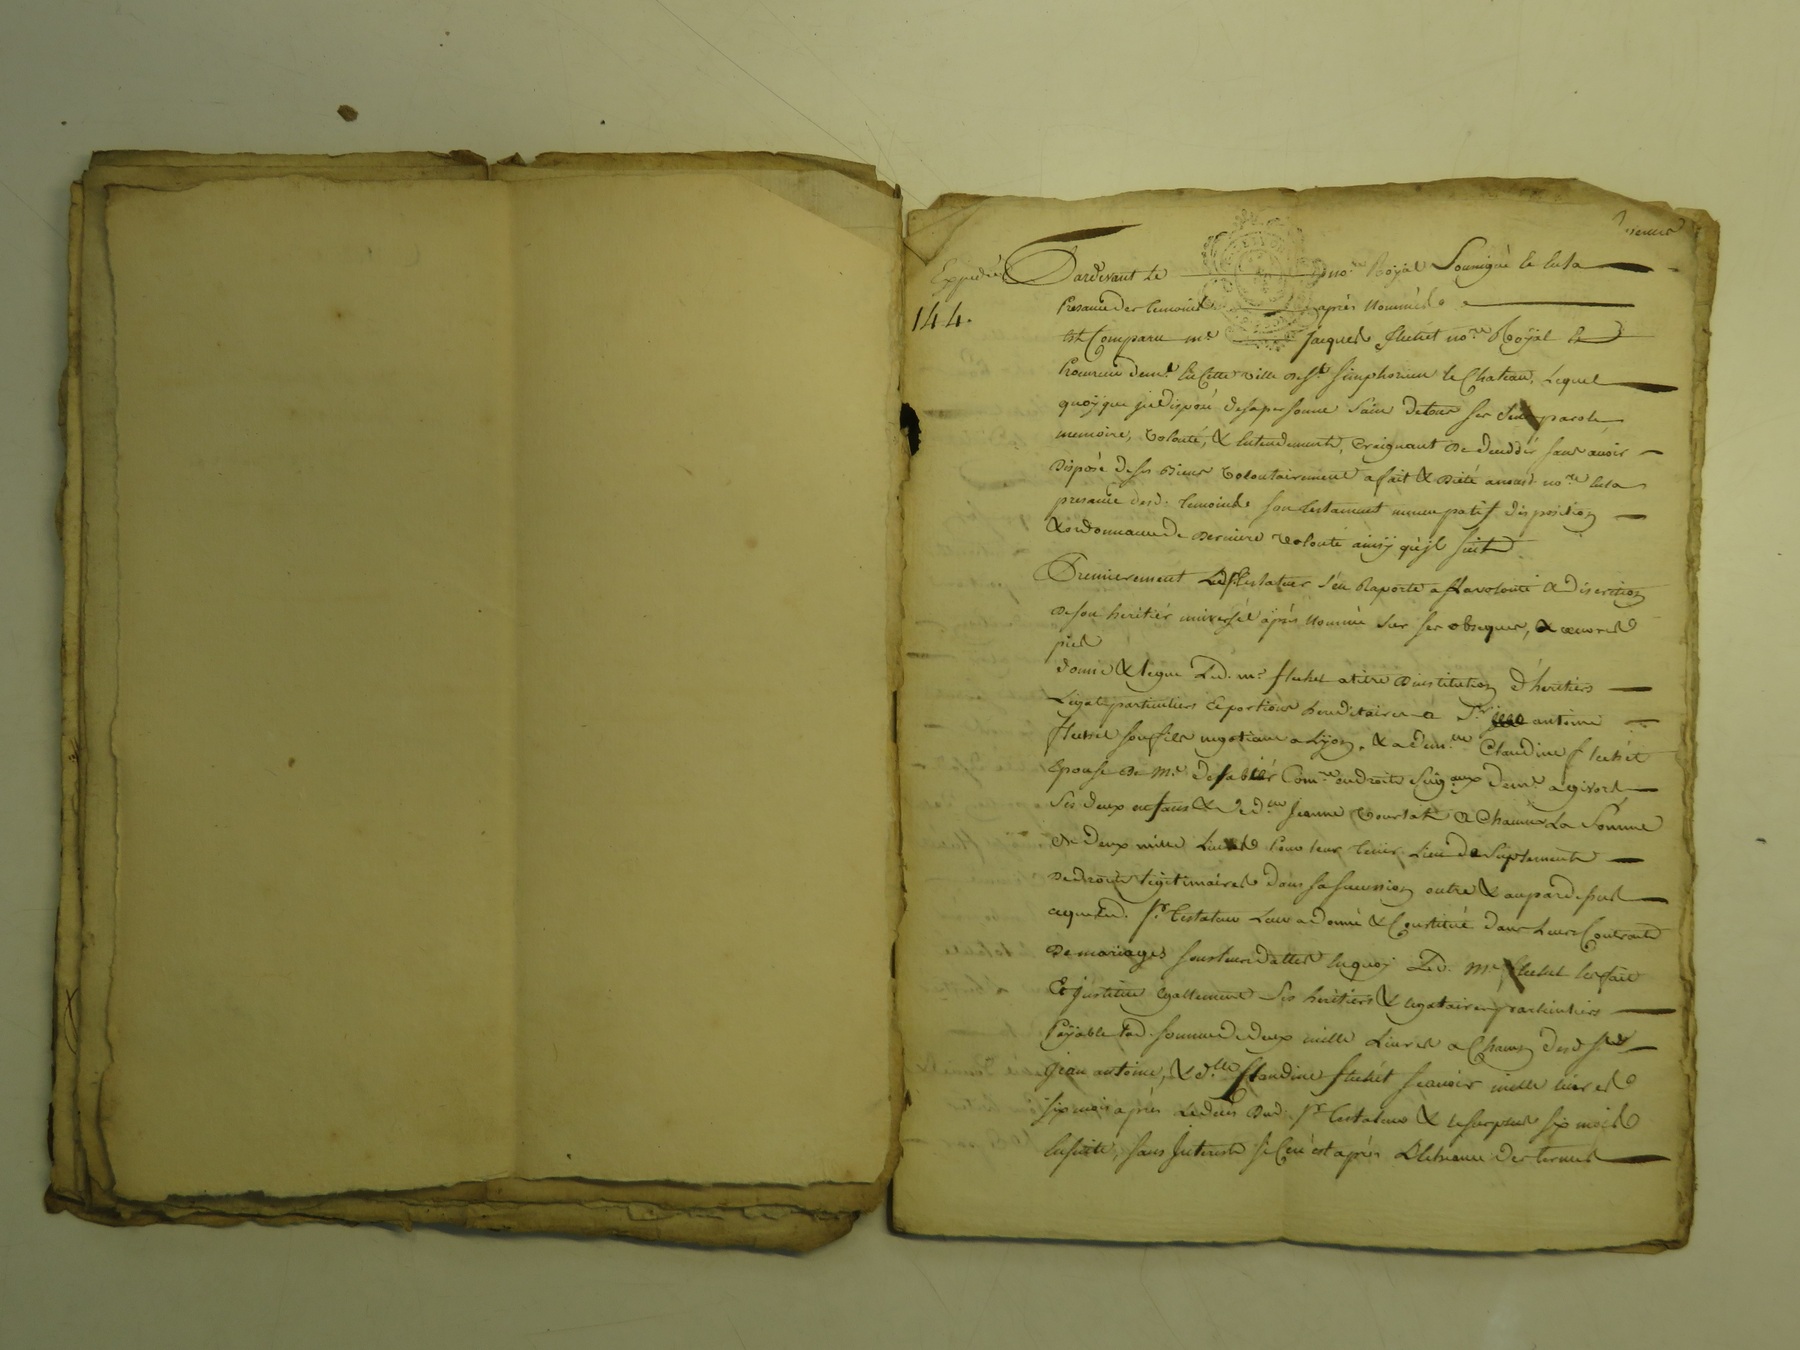 Expedié
144.
Pardevant le no.re Royal Sousigné et en sa
Presance des temoins après nommés
Est Comparu m.e Jacques fluchet no.re Royal et
Procureur dem.t en Cette ville de S.t simphorien le Chateau, Lequel
quoyque jndisposé de sa personne sain de tous ses sens parole
memoire, volonté, & entendement, craignant de deceddér sans avoir
disposé de ses Biens volontairement a fait & dicté a nousd. no.re en sa
presance desd. temoins son testament nuncupatif disposition
& ordonnance de derniere volonté ainsy qu'jl suit
Premierement Led. s.r testateur s'en Raporte a La volonté & discrétion
de son heritiér universél après nommé sur ses obseques, & œuvres
pies
donne & legue Led. m.e fluchet a titre d'institution d'heritiérs
Legats particuliers et portions hereditaires a S.r antoine
fluchet son fils negotiant a Lyon, & a dem.lle Claudine fluchét
Epouse de M.e Com.re en droits seig.aux dem.t a givors
ses deux enfans & de d.me jeanne a Chacun La Somme
de deux mille Livres Pour leur tenir Lieu de Suplement
de droits légitimaires dans sa succession outre & au pardessus
ce que Led. s.r testateur Leur a donné & Constitué dans Leurs Contrats
de mariages sous leurs dattes en quoy Led. M.e fluchet les fait
Et jnstitue egallement ses heritiers & legataires particuliers
Payable lad. somme de deux mille Livres a Chacun desd. s.r
jean antoine, & d.lle Claudine fluchét scavoir mille livres
six mois après Le deces dud. s.r testateur & le surplus six mois
ensuitte, sans Interests si Ce n'est après L'Echeance des termes